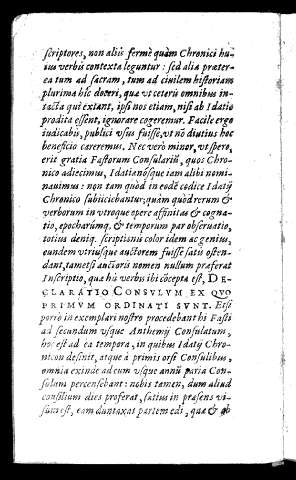 scriptores, non aliis fermè quàm Chronici hu-
ius verbis contexta leguntur: sed aliæ præter-
ea tum ad sacram, tum ad ciuilem historiam
plurima hîc doceri, quæ vt ceteris omnibus in-
tacta qui extant, ipsi nos etiam, nisi ab Idatio
prodita essent, ignorare cogeremur. Facile ergo
iudicabis, publici vsus fuisse, vt nõ diutius hoc
beneficio careremus. Nec verò minor, vt spero,
erit gratia Fastorum Consulariũ, quos Chro-
nico adiecimus, Idatianósque iam alibi nomi-
nauimus: non tam quòd in eodẽ codice Idatij
Chronico subiiciebantur, quàm quòd rerum &
verborum in vtroque opere affinitas & cogna-
tio, epocharúmq. & temporum par obseruatio,
totius deniq. scriptionis color idem ac genius,
eundem vtriusque auctorem fuisse satis osten-
dant, tametsi auctoris nomen nullum præferat
Inscriptio, quæ his verbis ibi cõcepta est, DE-
CLARATIO CONSVLVM EX QVO
PRIMVM ORDINATI SVNT. Etsi
porrò in exemplari nostro procedebant hi Fasti
ad secundum vsque Anthemij Consulatum,
hoc est ad ea tempora, in quibus Idatij Chro-
nicon desinit, atque à primis orsi Consulibus,
omnia exinde ad eum vsque annũ paria Con-
sulum percensebant: nobis tamen, dum aliud
consilium dies proferat, satius in præsens vi-
sum est, eam duntaxat partem edi, quæ & ab